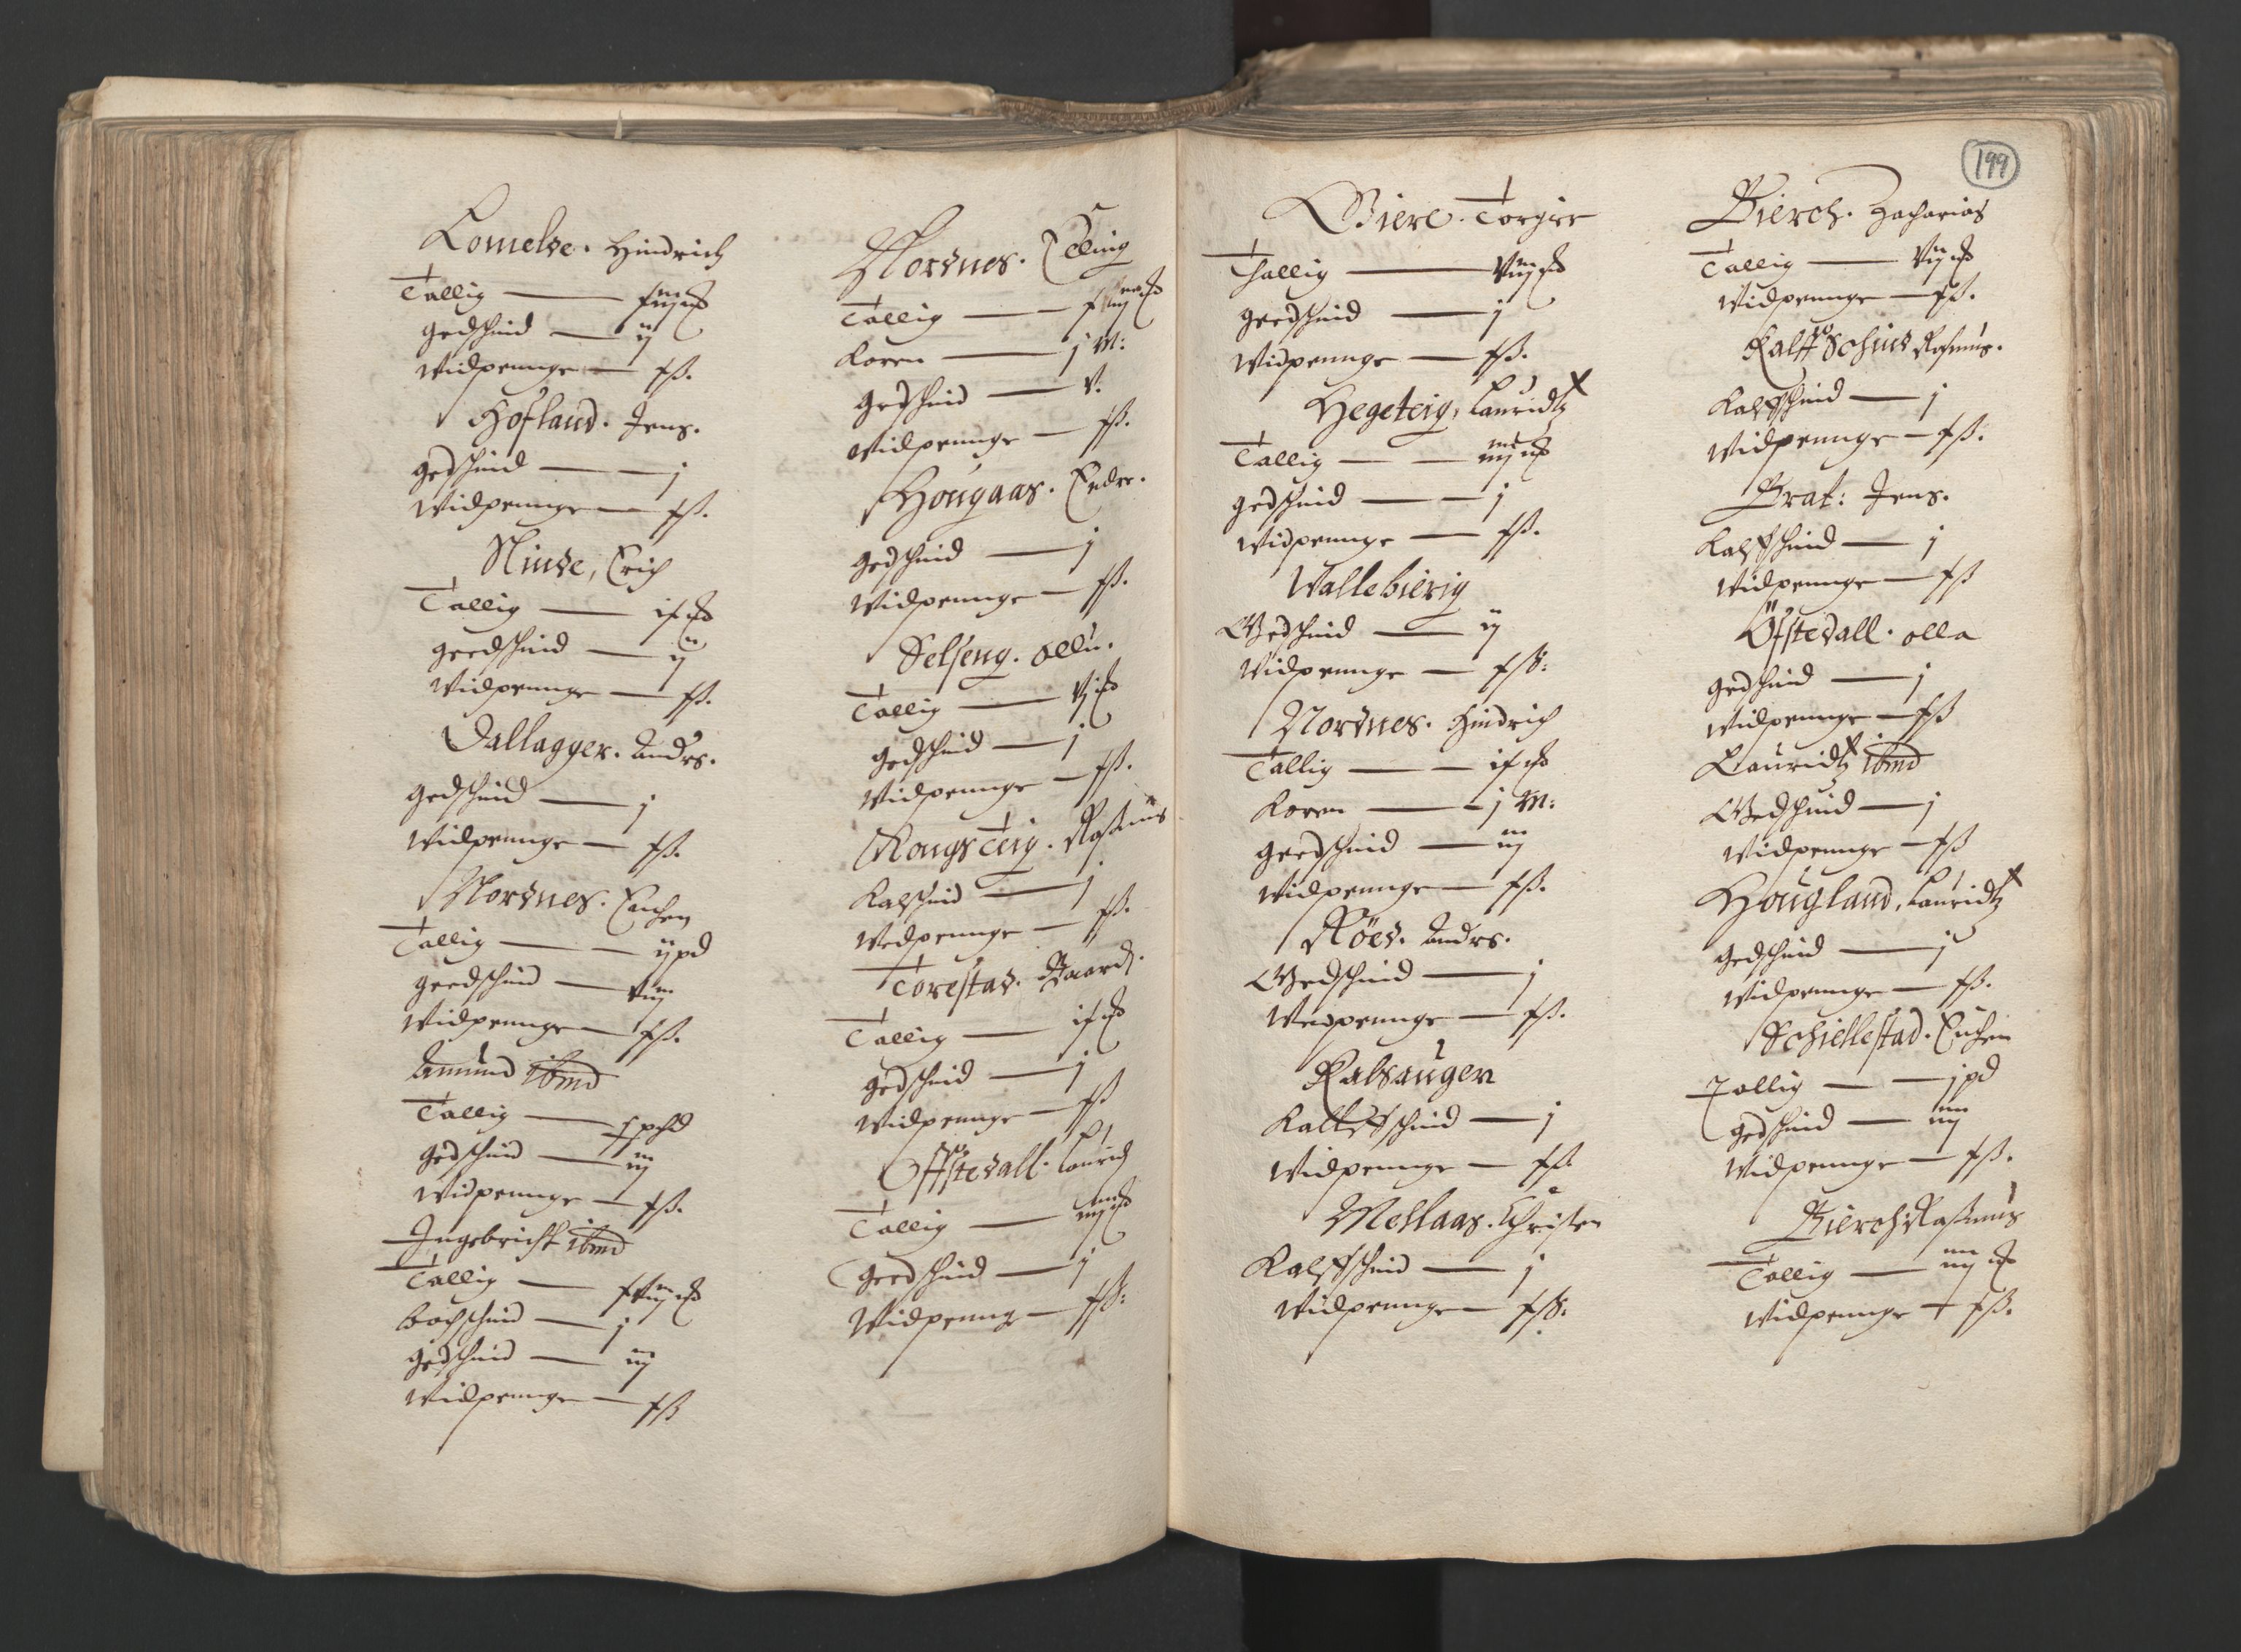 Lomelde. Hindrich
Tallig —
gedschind — ij
Widpennge — fß.
Hofland. Jens.
gedschind — j
Widpennge — fß.
Ninde, Erich
Tallig —
geedschind — ij
Widpennge — fß.
Dallagger. Anders.
gedschind — j
Widpennge — fß.
Nordnes.
Tallig — ij pd
geedschind — viij
Widpennge — fß.
Amund ibmd
Tallig —
gedschind — iij
Widpennge — fß.
Ingebricht ibmd
Tallig —
bochschind — j
gedschind — iij
Widpennge — fß
Nordnes. Elling
Tallig —
Koren — j M:
gedschind — v.
Widpennge — fß.
Hougaas. Endre.
gedschind — j
Widpennge — fß.
Selseng. Olluf.
Tallig — vj
gedschind — j
Widpennge — fß.
Tallig. Rasmus
Kalschind — j
Wedpennge — fß.
Torestad. Baard.
Tallig —
gedschind — j
Widpennge — fß
Offstedall. Laurids
Tallig — iiij
Geedschind — j
Widpenng — fß:
199
Bierc. Torgier
Tallig — viij
geedschind — j
Widpennge — fß.
Hegeteig, Lauridtz
Tallig — iiij
gedschind — j
Widpennge — fß.
Wallebierig
Gedschind — ij
Widpennge — fß:
Nordnes. Hindrich
Tallig —
Koren — j M:
geedschind — iij
Widpennge — fß.
Röed. Anders.
Gedschind — j
Wedpennge — fß.
Kalsauger
Kalffschind — j
Widpennge — fß.
Mellaas. Christen
Kalffschind — j
Widpennge — fß:
Bierch. Zacharias
Tallig — vij
Widpennge — fß.
Rasmus.
Kalffschind — j
Widpennge — fß.
Brat: Jens.
Kalffschind — j
Widpennge — fß
Öfstedall. Olla
gedschind — j
Widpennge — fß
Lauridtz ibmd
Gedschind — j
Widpennge — fß
Hougland, Lauridtz
gedschind — j
Widpennge — fß.
Schiellestad.
Tallig — j pd
gedschind — iiij
Widpennge — fß.
Bierch. Rasmus
Tallig — iiij
Widpennge — fß.